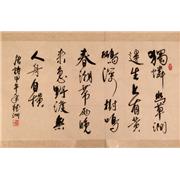 獨憐幽草澗
邊生上有黄
鸝深樹鳴
春潮帶雨晚
来急野渡無
人舟自横
唐詩甲午年